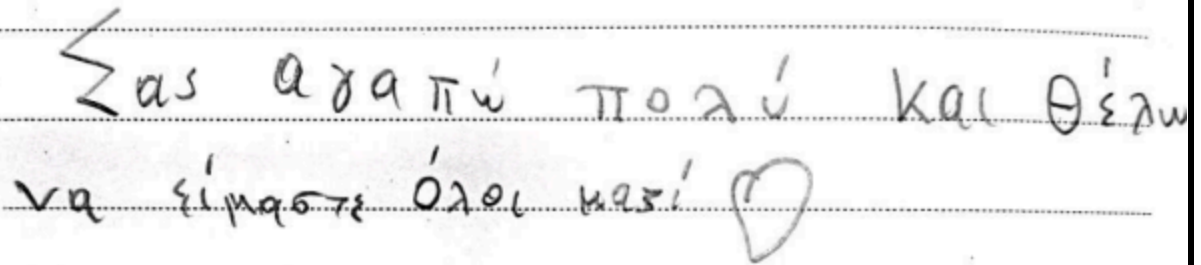 Σας αγαπώ πολύ και θέλω
να είμαστε όλοι μαζί